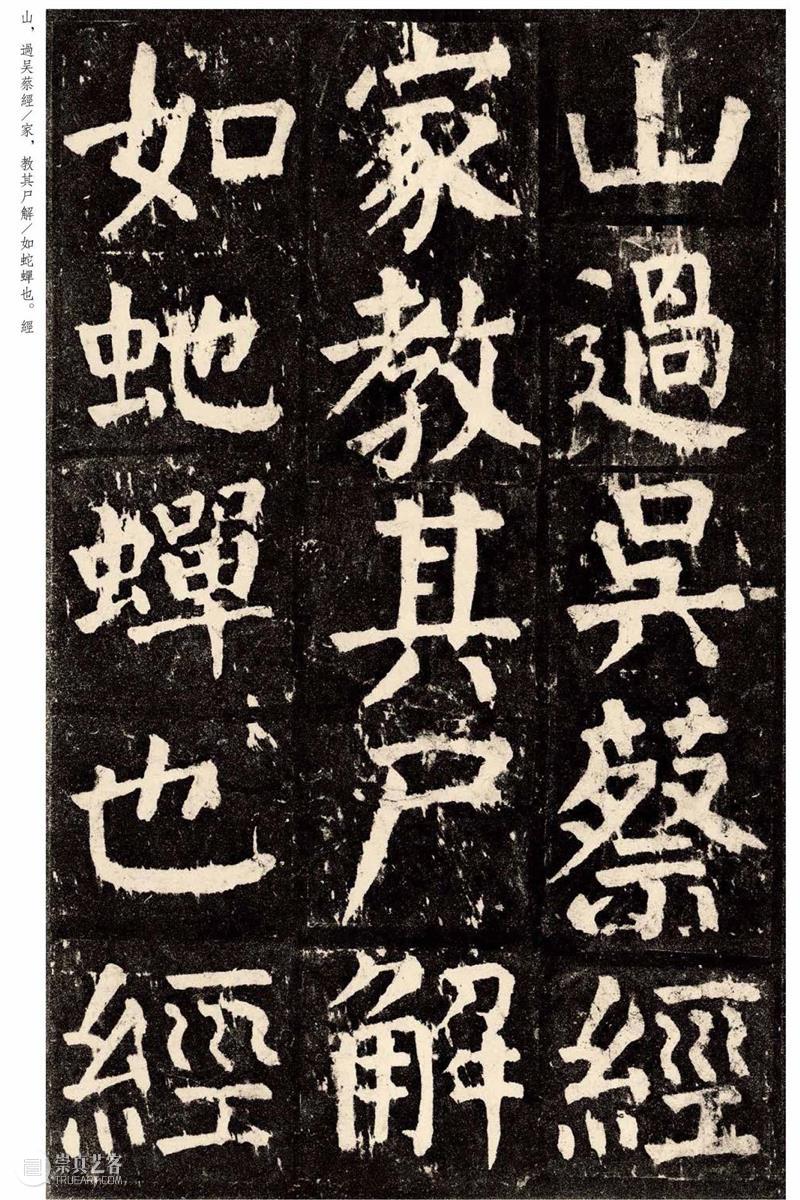 山過吳蔡經
家教其尸解
如虵蟬也經
山，過吴蔡經／家，教其尸解／如蛇蟬也。經
崇真艺客
TRUEART.COM